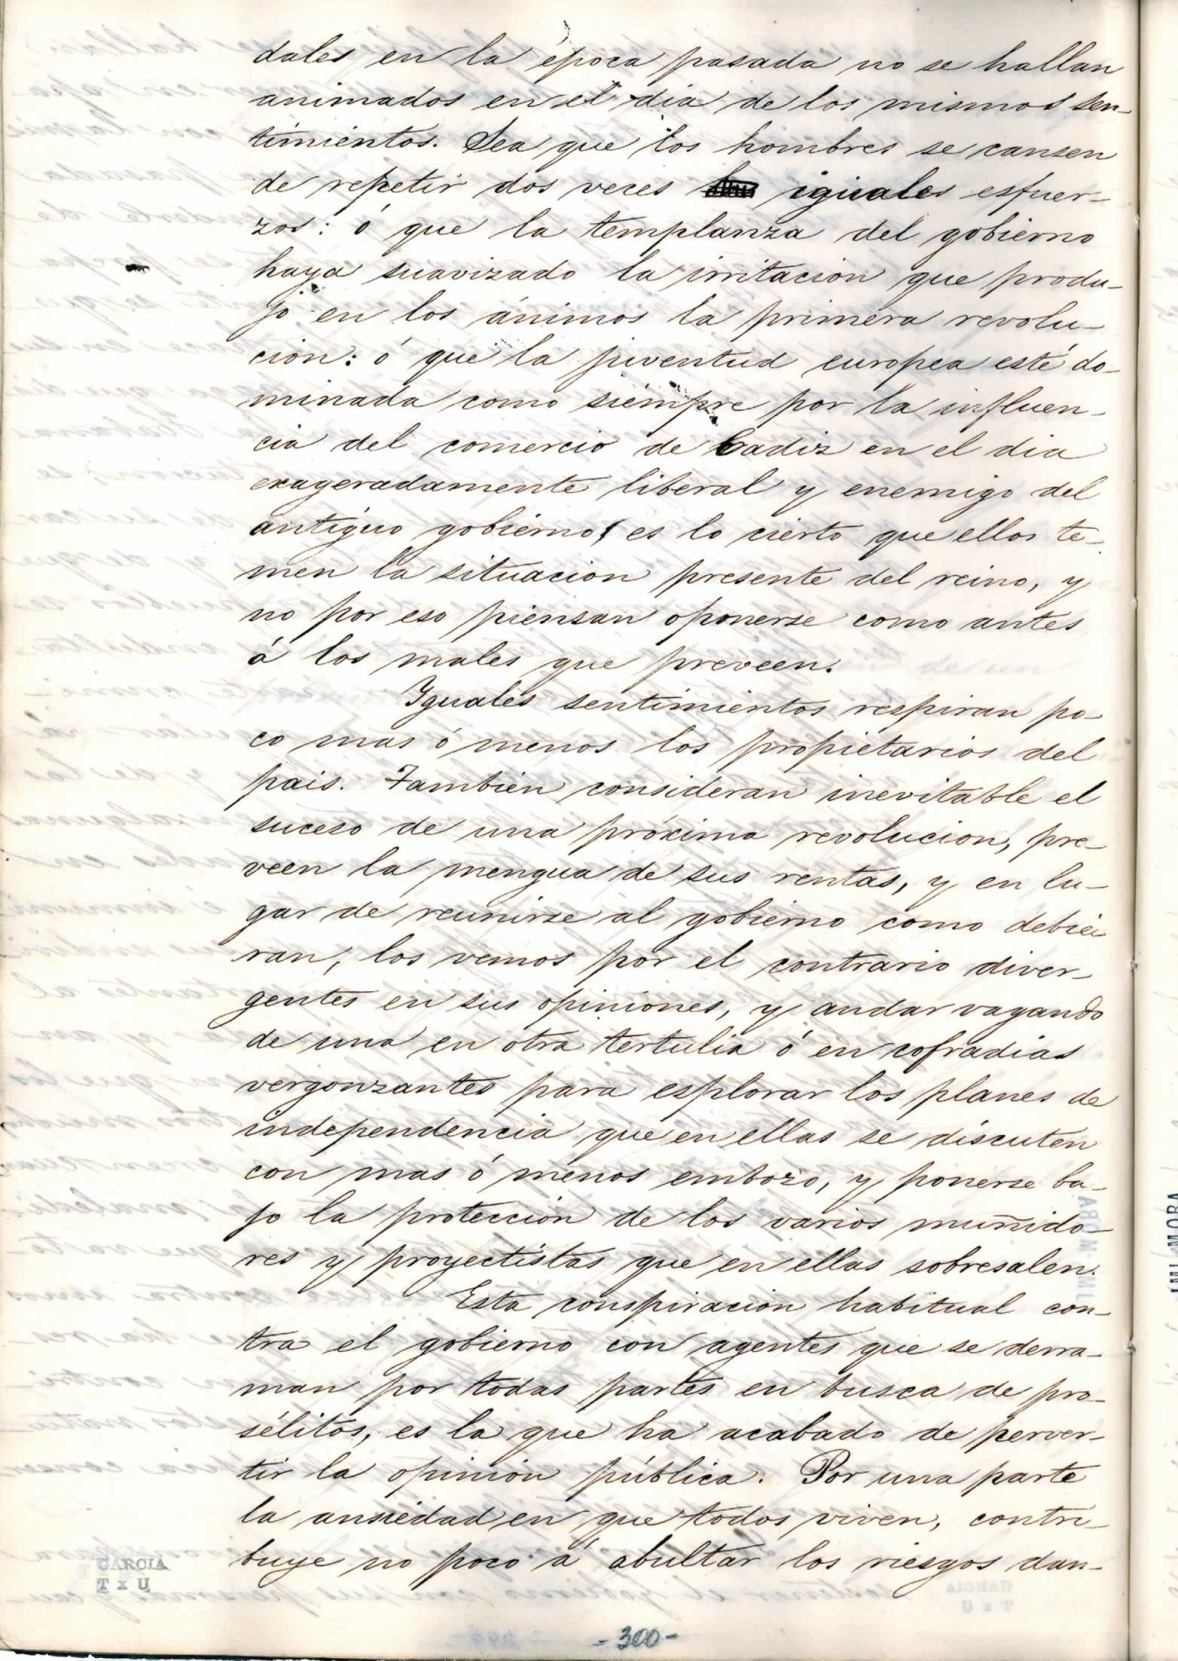 dales en la época pasada no se hallan
animados en el dia de los mismos sen-
timientos. Sea que los hombres se cansen
de repetir dos veces iguales esfuer-
zos: ó que la templanza del gobierno
haya suavizado la irritacion que produ-
jo en los ánimos la primera revolu-
cion: ó que la juventud europea esté do-
minada como siempre por la influen-
cia del comercio de Cadiz en el dia
exageradamente liberal y enemigo del
antiguo gobierno; es lo cierto que ellos te-
men la situacion presente del reino, y
no por eso piensan oponerse como antes
á los males que preveen.
Iguales sentimientos respiran po-
co mas ó menos los propietarios del
pais. Tambien consideran inevitable el
suceso de una próxima revolucion, pre-
veen la mengua de sus rentas, y en lu-
gar de reunirse al gobierno como debie-
ran, los vemos por el contrario diver-
gentes en sus opiniones, y andar vagando
de una en otra tertulia ó en cofradias
vergonzantes para esplorar los planes de
independencia que en ellas se discuten
con mas ó menos embozo, y ponerse ba-
jo la protección de los varios muñido-
res y proyectistas que en ellas sobresalen.
Esta conspiracion habitual con-
tra el gobierno con agentes que se derra-
man por todas partes en busca de pro-
sélitos, es la que ha acabado de perver-
tir la opinión pública. Por una parte
la ansiedad en que todos viven, contri-
buye no poco á abultar los riesgos dan-
GARCIA
T x U
- 300 -